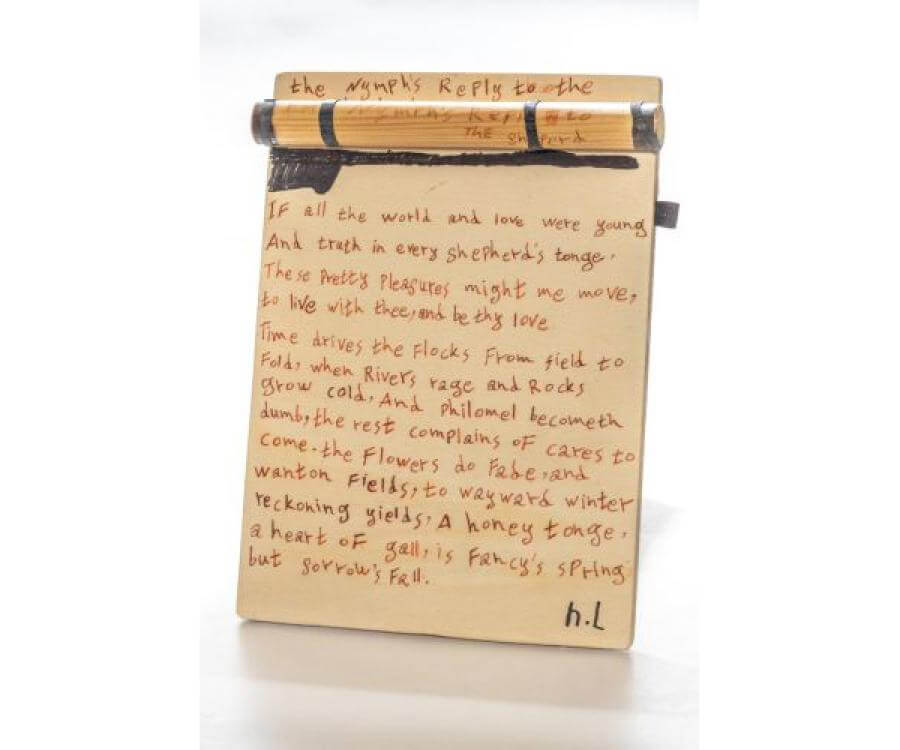 the Nymph's Reply to the
Nymph's Repl to
THE Sheperd
IF all the world and love were young
And truth in every shepherd's tonge.
These Pretty Pleasures might me move,
to live with thee, and be thy love
Time drives the Flocks From field to
Fold, when Rivers rage and Rocks
grow cold, And Philomel becometh
dumb, the rest complains oF cares to
come. the Flowers do Fade, and
wanton Fields, to wayward winter
reckoning yields, A honey tonge,
a heart oF gall, is Fancy's spring
but sorrow's Fall.
h.L